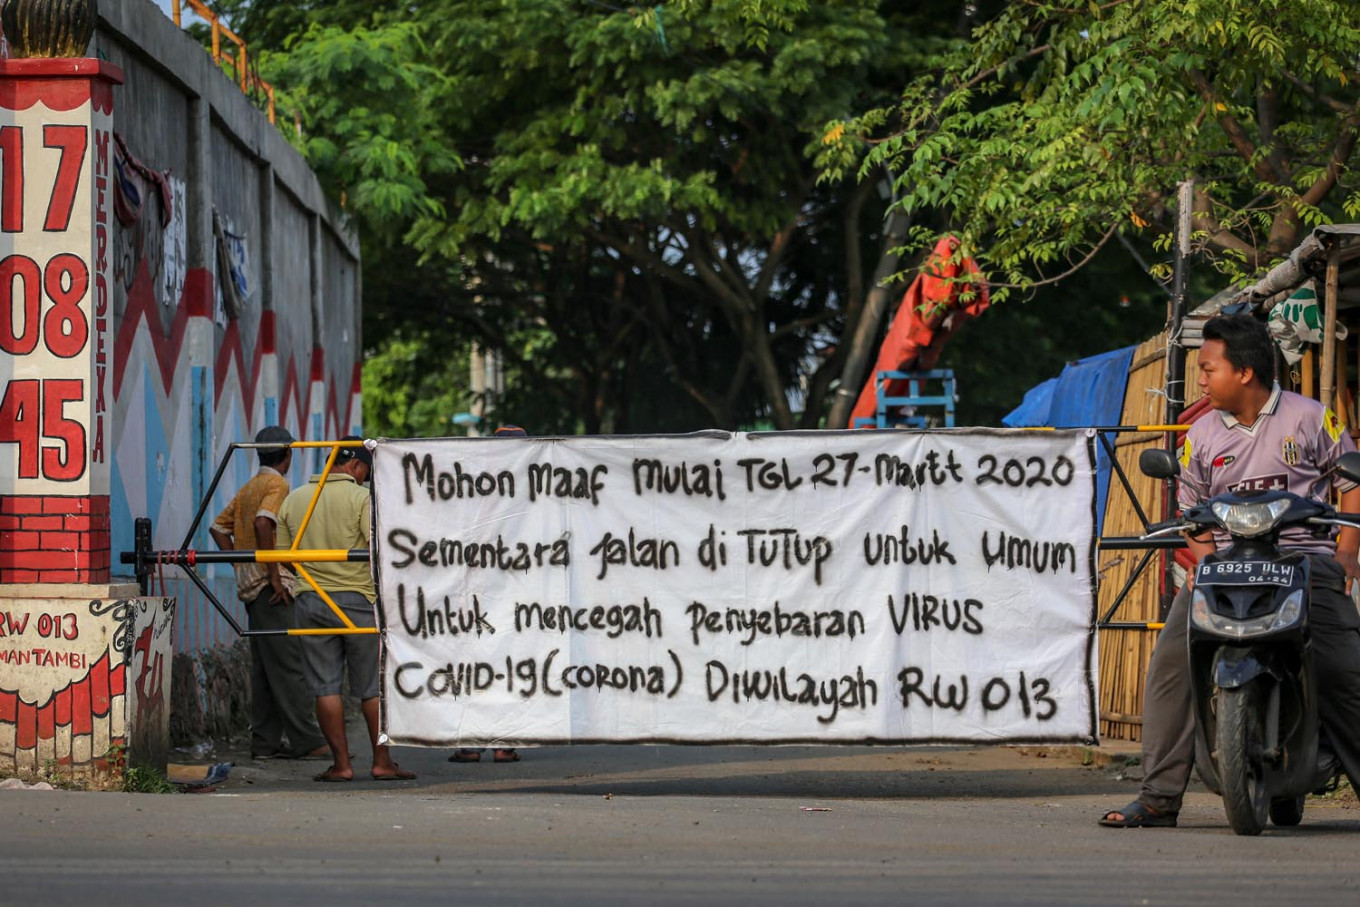 17
08
45
MERDEKA
RW 013
MAN TAMBI
Mohon Maaf Mulai TGL 27-Martt 2020
Sementara Jalan di TuTup untuk Umum
Untuk mencegah Penyebaran VIRUS
COVID-19 (coRona) DiwiLayah RW 013
B 6925 ULW
04·24